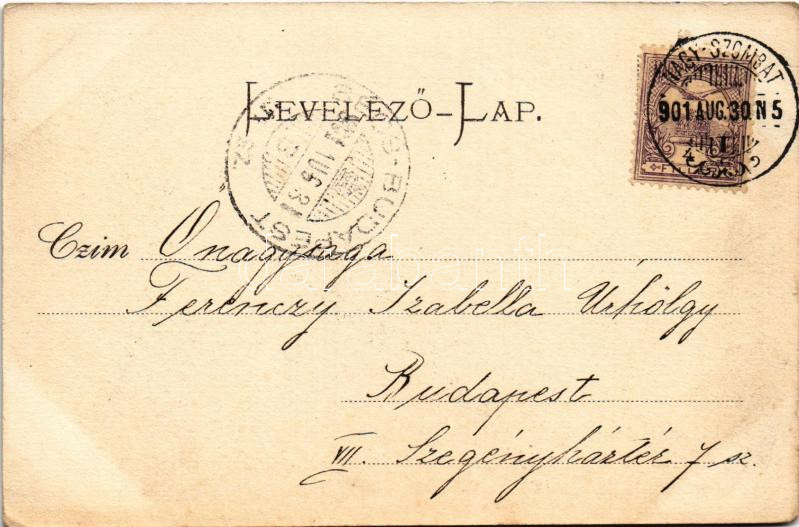 LEVELEZŐ-LAP.
NAGY-SZOMBAT
901 AUG. 30. N 5
BUDAPEST
Czim Őnagysága
Ferenczy Izabella Úrhölgy
Budapest
VII. Szegényháztér 7 sz.
darabanth